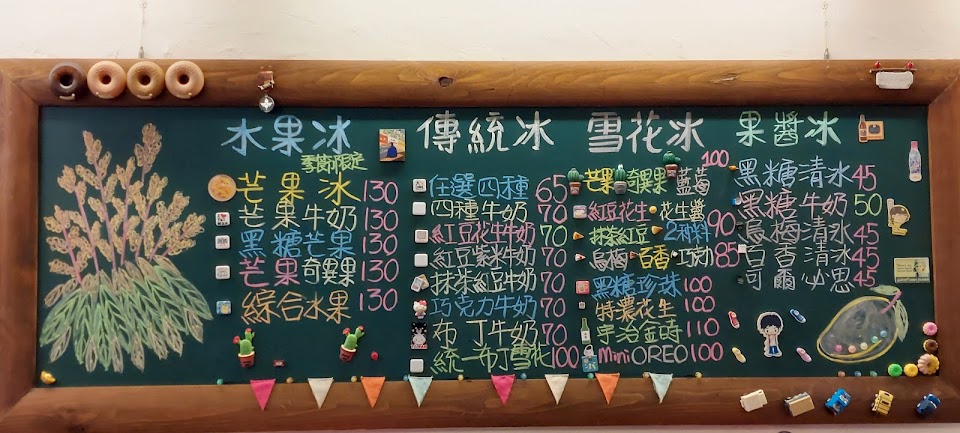 水果冰
季節限定
芒果冰 130
芒果牛奶 130
黑糖芒果 130
芒果奇異果 130
綜合水果 130
傳統冰
任選四種 65
四種牛奶 70
紅豆花生牛奶 70
紅豆紫米牛奶 70
抹茶紅豆牛奶 70
巧克力牛奶 70
布丁牛奶 70
統一布丁雪花 100
雪花冰
芒果 奇異果 藍莓 100
紅豆花生 花生醬
抹茶紅豆 2種料 90
烏梅 百香 巧克力 85
黑糖珍珠 100
特濃花生 100
宇治金時 110
Mini OREO 100
果醬冰
黑糖清冰 45
黑糖牛奶 50
烏梅清冰 45
百香清冰 45
可爾必思 45